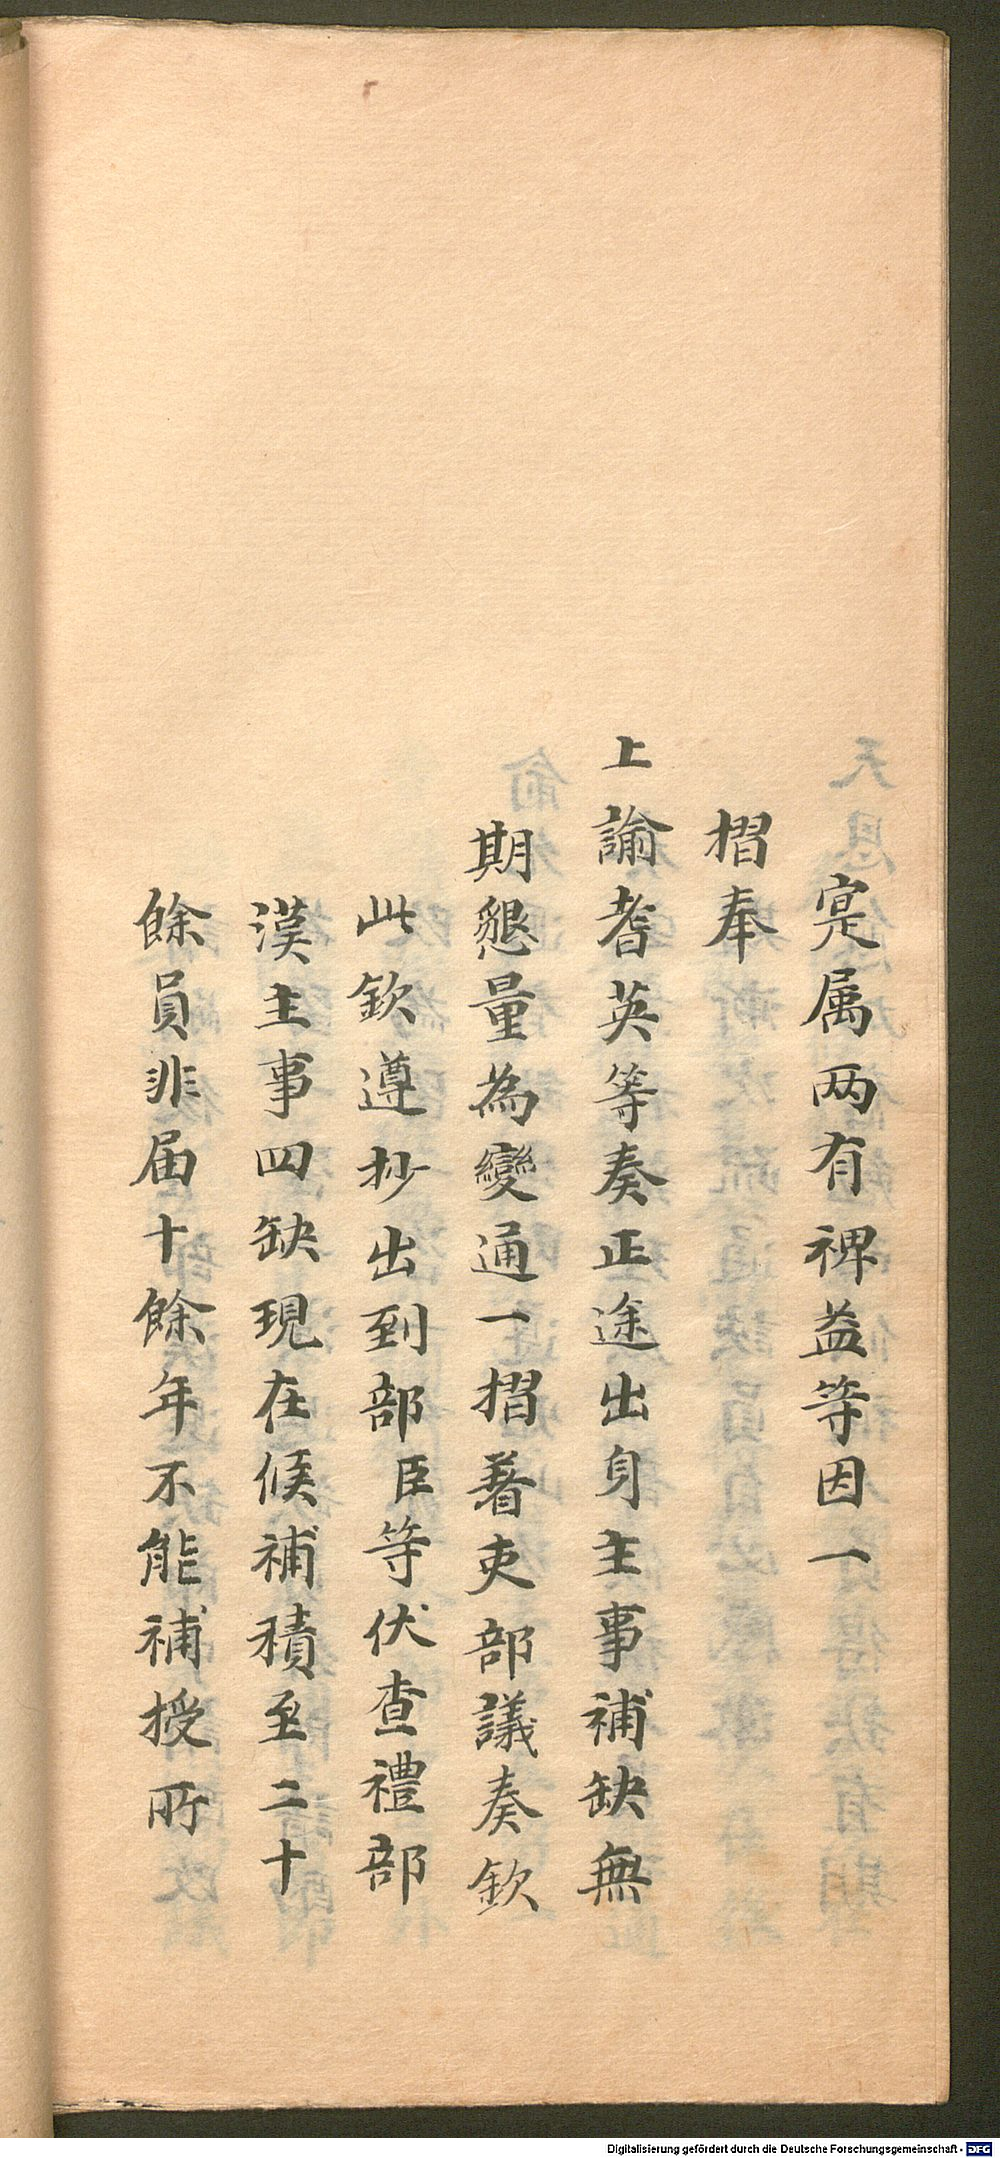 寔属两有裨益等因一
摺奉
上諭耆英等奏正途出身主事補缺無
期懇量為變通一摺著吏部議奏欽
此欽遵抄出到部臣等伏查禮部
漢主事四缺現在候補積至二十
餘員非届十餘年不能補授所
Digitalisierung gefördert durch die Deutsche Forschungsgemeinschaft - DFG